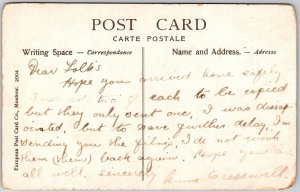 POST CARD
CARTE POSTALE
Writing Space — Correspondance
Name and Address. — Adresse
European Post Card Co., Montreal 2004
Dear Folks
Hope you arrived home safely
I two of each to be copied
but they only sent one, I was disap
ointed, but to save further delay, I'm
sending you the films, I do not want
them (them) back again. Hope you
all well, sincerely